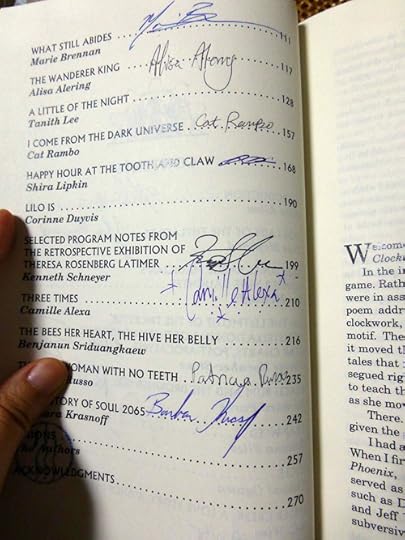 WHAT STILL ABIDES 111
Marie Brennan
THE WANDERER KING Alisa Alering 117
Alisa Alering
A LITTLE OF THE NIGHT 128
Tanith Lee
I COME FROM THE DARK UNIVERSE Cat Rambo 157
Cat Rambo
HAPPY HOUR AT THE TOOTH AND CLAW 168
Shira Lipkin
LILO IS 190
Corinne Duyvis
SELECTED PROGRAM NOTES FROM
THE RETROSPECTIVE EXHIBITION OF
THERESA ROSENBERG LATIMER 199
Kenneth Schneyer
Camille Alexa
THREE TIMES 210
Camille Alexa
THE BEES HER HEART, THE HIVE HER BELLY 216
Benjanun Sriduangkaew
WOMAN WITH NO TEETH Patricia Russo 235
Russo
STORY OF SOUL 2065 Barbara Krasnoff 242
Krasnoff
257
Authors
ACKNOWLEDGMENTS 270
Welcome
Clock
In the i
game. Rath
were in ass
poem addr
clockwork,
motif. Thes
it moved th
tales that
segued righ
to teach th
as she mov
There.
given the
I had a
When I fir
Phoenix,
served as
such as D
and Jeff
subversiv